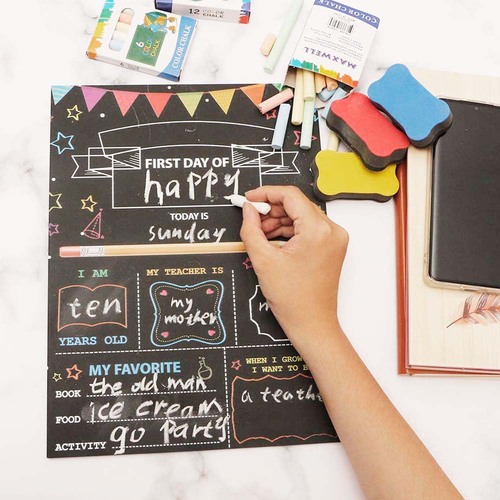 12 COLOR CHALK
6 COLOR CHALK
COLOR CHALK
COLOR CHALK
MAXWELL
FIRST DAY OF
happy
TODAY IS
sunday
I AM
ten
YEARS OLD
MY TEACHER IS
my
mother
MY FAVORITE
BOOK the old man
FOOD ice cream
ACTIVITY go party
WHEN I GROW
I WANT TO
a teache